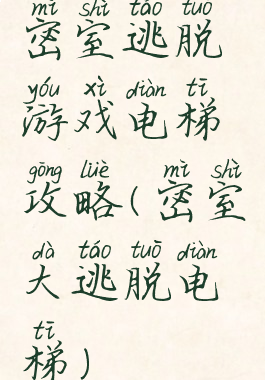 mì shì táo tuō
密室逃脱
yóu xì diàn tī
游戏电梯
gōng lüè mì shì
攻略(密室
dà táo tuō diàn
大逃脱电
tī
梯)